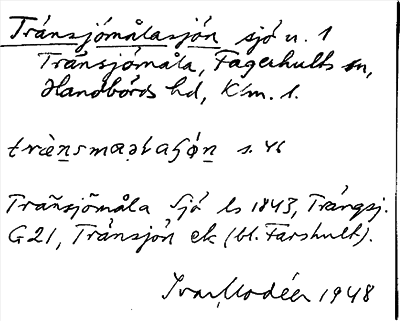 Tránsjömålasjön sjö n. 1
Tránsjömåla, Fagerhults sn,
Handbörds hd, Klm. l.
trὲnsmaəlaʃǿn s. 46
Trañsjömåla Sjö ls 1843, Trångsj.
G21, Tránsjön ek (bl. Farshult).
Ivar Modéer 1948